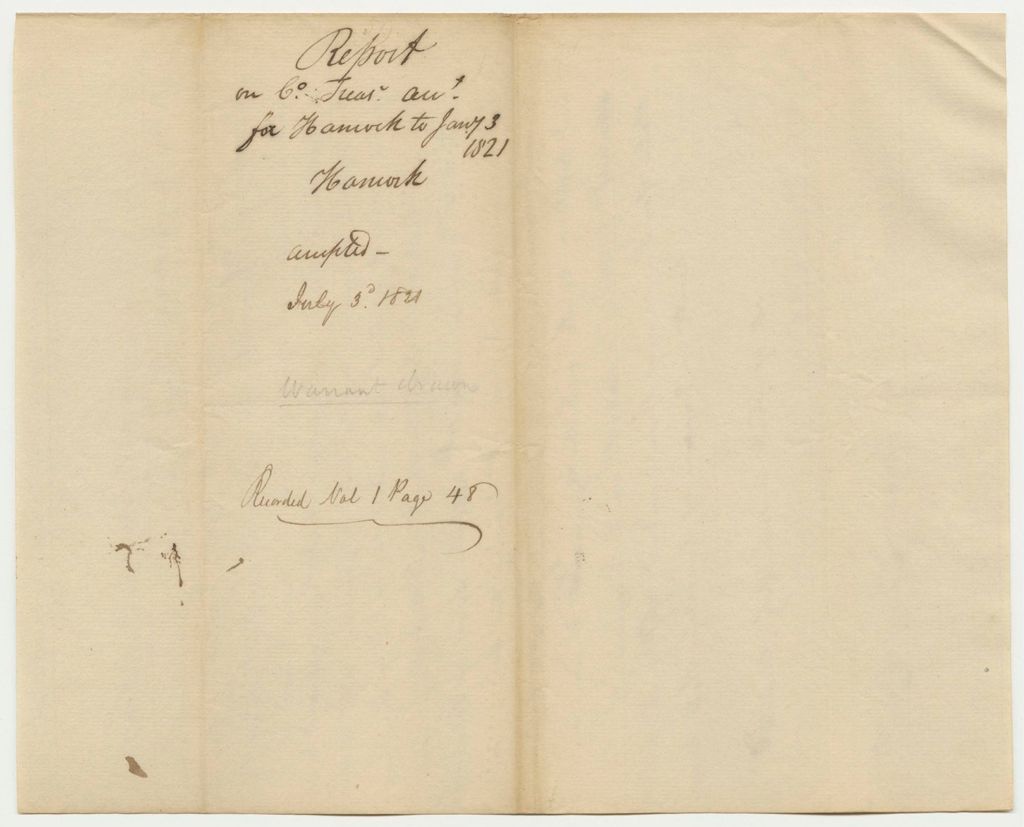 Report
on Co. Treasr. acct.
for Hancock to Jany 3
1821
Hancock
accepted -
July 3d. 1821
Warrant drawn
Recorded Vol 1 Page 48